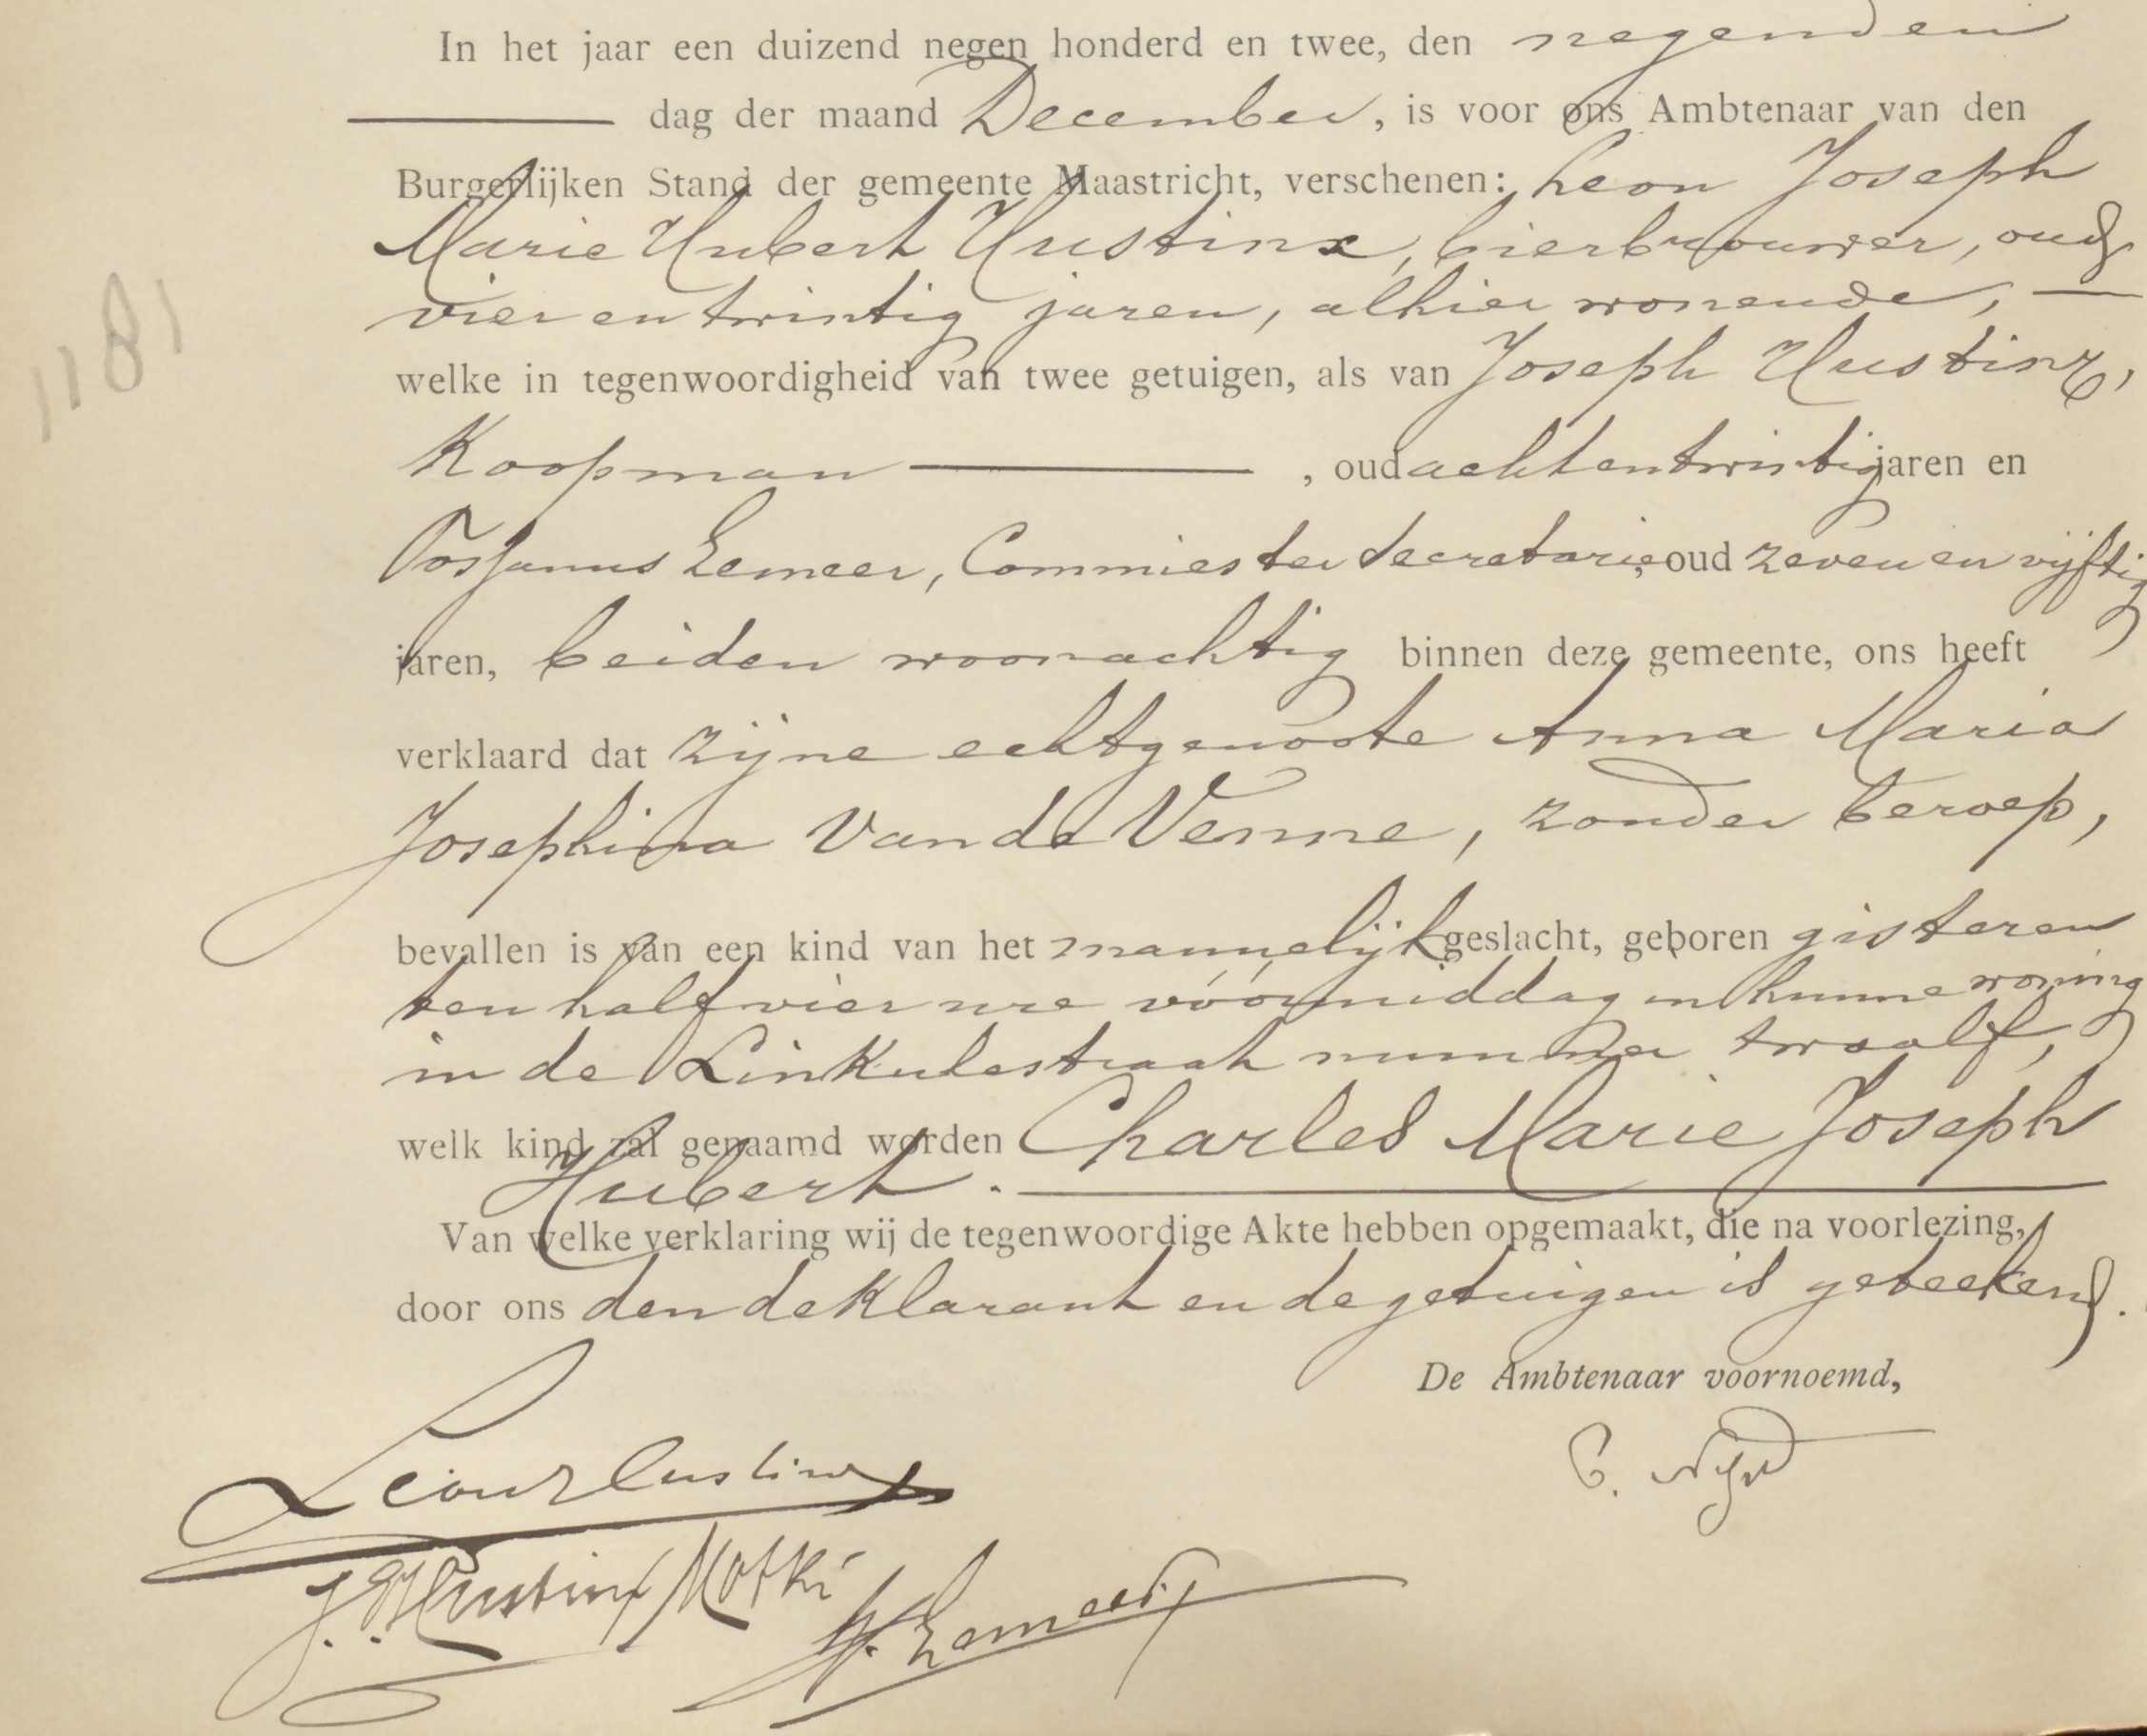 In het jaar een duizend negen honderd en twee, den negenden
dag der maand December, is voor ons Ambtenaar van den
Burgerlijken Stand der gemeente Maastricht, verschenen: Leon Joseph
Marie Hubert Hustinx, bierbrouwer, oud
vier en twintig jaren, alhier wonende,
1181
welke in tegenwoordigheid van twee getuigen, als van Joseph Hustinx,
Koopman, oud acht en twintig jaren en
Lemeer, Commies ter Secretarie, oud zeven en vijftig
jaren, beiden woonachtig binnen deze gemeente, ons heeft
verklaard dat zijne echtgenoote Anna Maria
Josephina Van de Venne, zonder beroep,
bevallen is van een kind van het mannelijk geslacht, geboren gisteren
ten half vier ure vóórmiddag in hunne woning
in de Linkulestraat nummer twaalf,
welk kind zal genaamd worden Charles Marie Joseph
Hubert.
Van welke verklaring wij de tegenwoordige Akte hebben opgemaakt, die na voorlezing,
door ons den deklarant en de getuigen is geteekend.
De Ambtenaar voornoemd,
Leon Hustinx
J. Hustinx
Lemeer